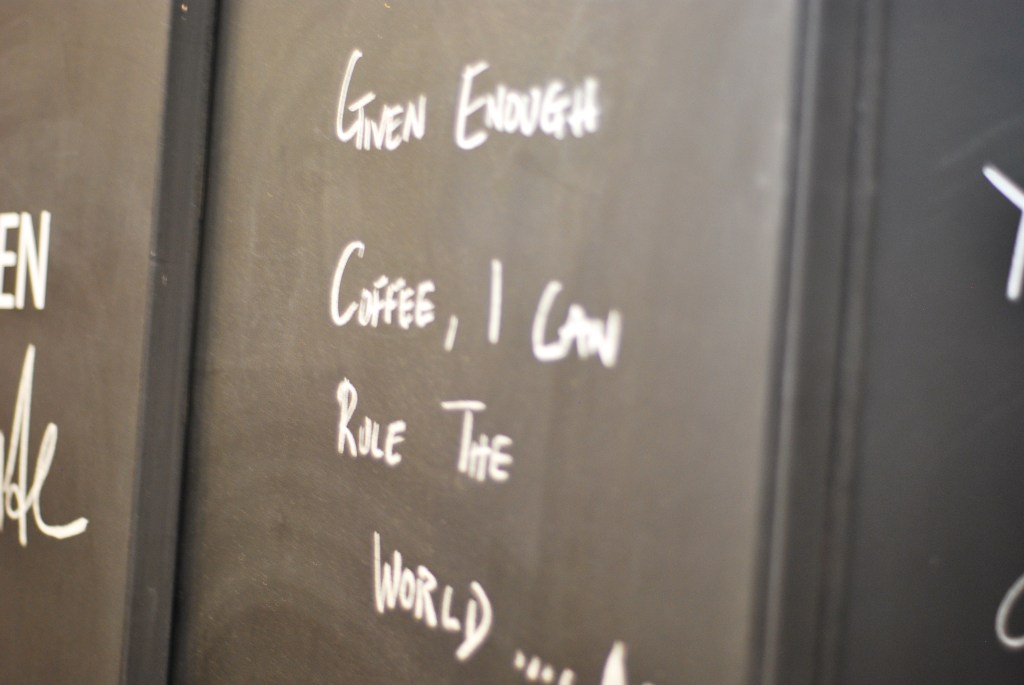 Given Enough
Coffee, I Can
Rule The
World ....